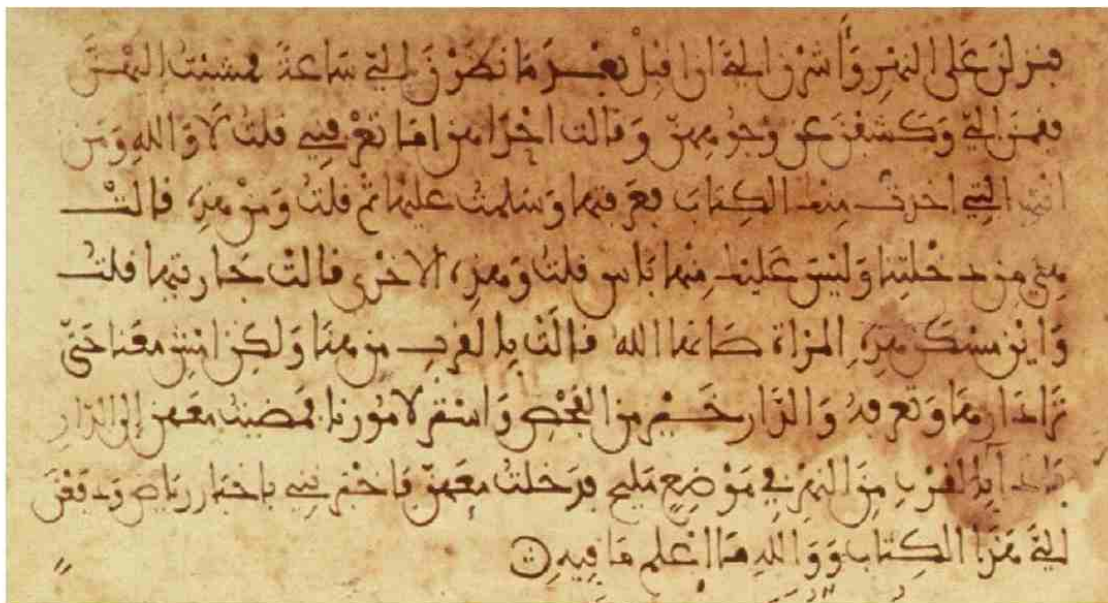 فنزلن على النهر وأشرن إليّ ان اقبل بعد ما نظرن إليّ ساعة فمشيت اليهن
فقمن اليّ وكشفن عن وجوههن وقالت احداهن اما تعرفيني قلت لا والله ومن
انت التي اخذت منك الكتاب فعرفتها وسلمت عليها ثم قلت ومن هذه قالت
هي من دخلتنا وليس عليك منها باس قلت وهذه الاخرى قالت جاريتها قلت
واين مسكن هذه المراة صانها الله قالت بالقرب من هنا ولكن امش معنا حتى
ترا دارها وتعرفه والدار خير من الفحص واستر لامورنا فمضيت معهن إلى الدار
فاذا بالقرب من النهر في موضع مليح فدخلت معهن فاخبرنني باخبار رياض ودفعن
اليّ هذا الكتاب ووالله ما اعلم ما فيه